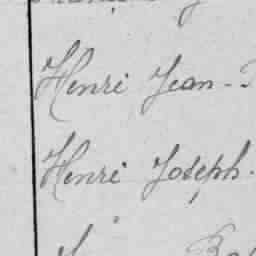 Henri Jean-
Henri Joseph.